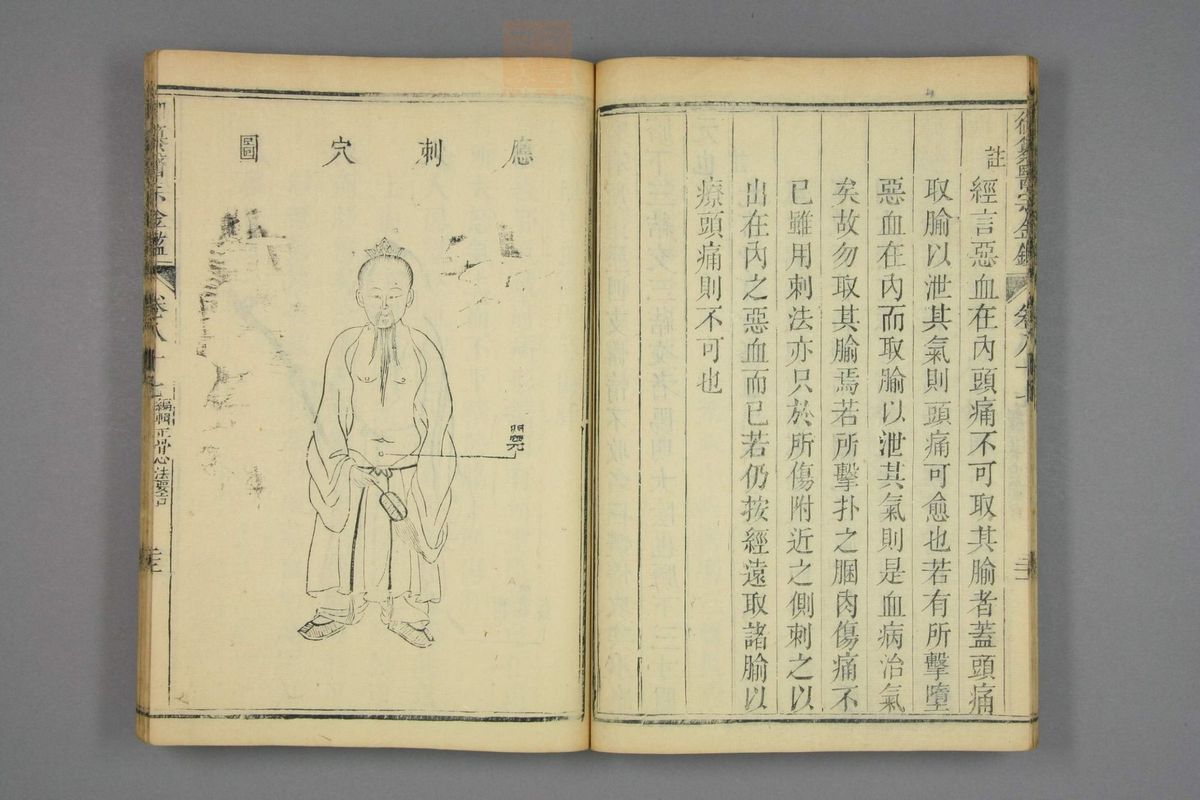 御纂醫宗金鑑 卷八十七
註
經言惡血在內頭痛不可取其腧者蓋頭痛
取腧以泄其氣則頭痛可愈也若有所擊墮
惡血在內而取腧以泄其氣則是血病治氣
矣故勿取其腧焉若所擊扑之膕肉傷痛不
已雖用刺法亦只於所傷附近之側刺之以
出在內之惡血而已若仍按經遠取諸腧以
療頭痛則不可也
應刺穴圖
關元
纂醫宗金鑑 卷八十七 編輯正骨心法要旨